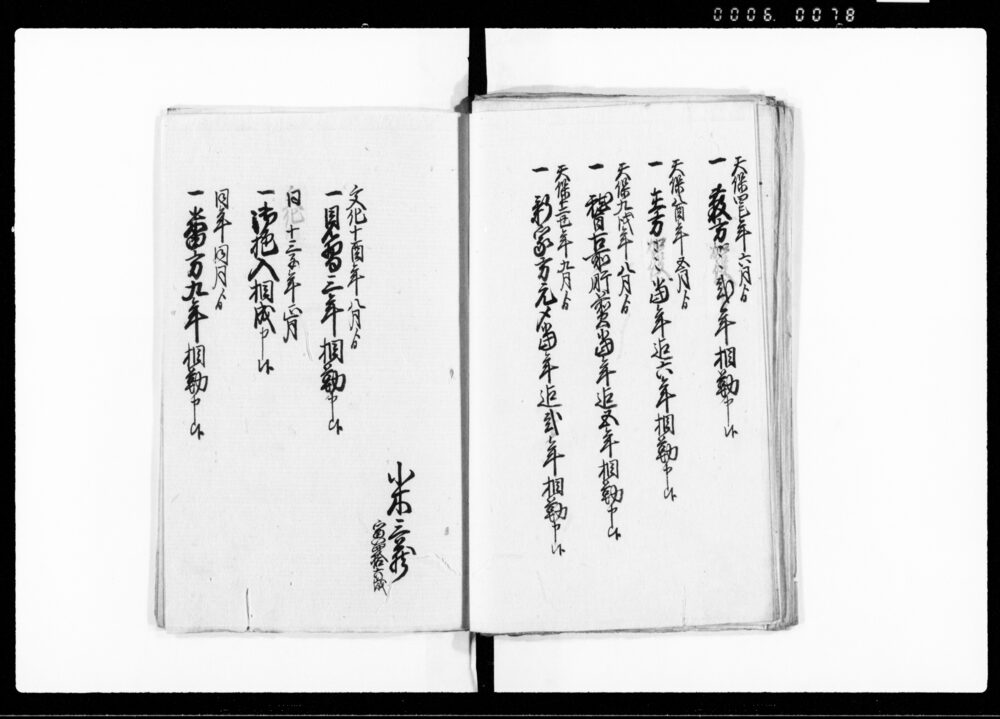 0006.0078
天保四巳年六月ゟ
一 蔵方 弐年相勤申候
天保八酉年五月ゟ
一 主方 当年迄六年相勤申候
天保九戌年八月ゟ
一 当年迄五年相勤申候
天保十二丑年九月ゟ
一 新家方元〆当年迄弐年相勤申候
小木
寅四拾六歳
文化十酉年八月ゟ
一 見習三年相勤申候
同 十三子年四月
一 御抱入相成申候
同年同月ゟ
一 番方九年相勤申候